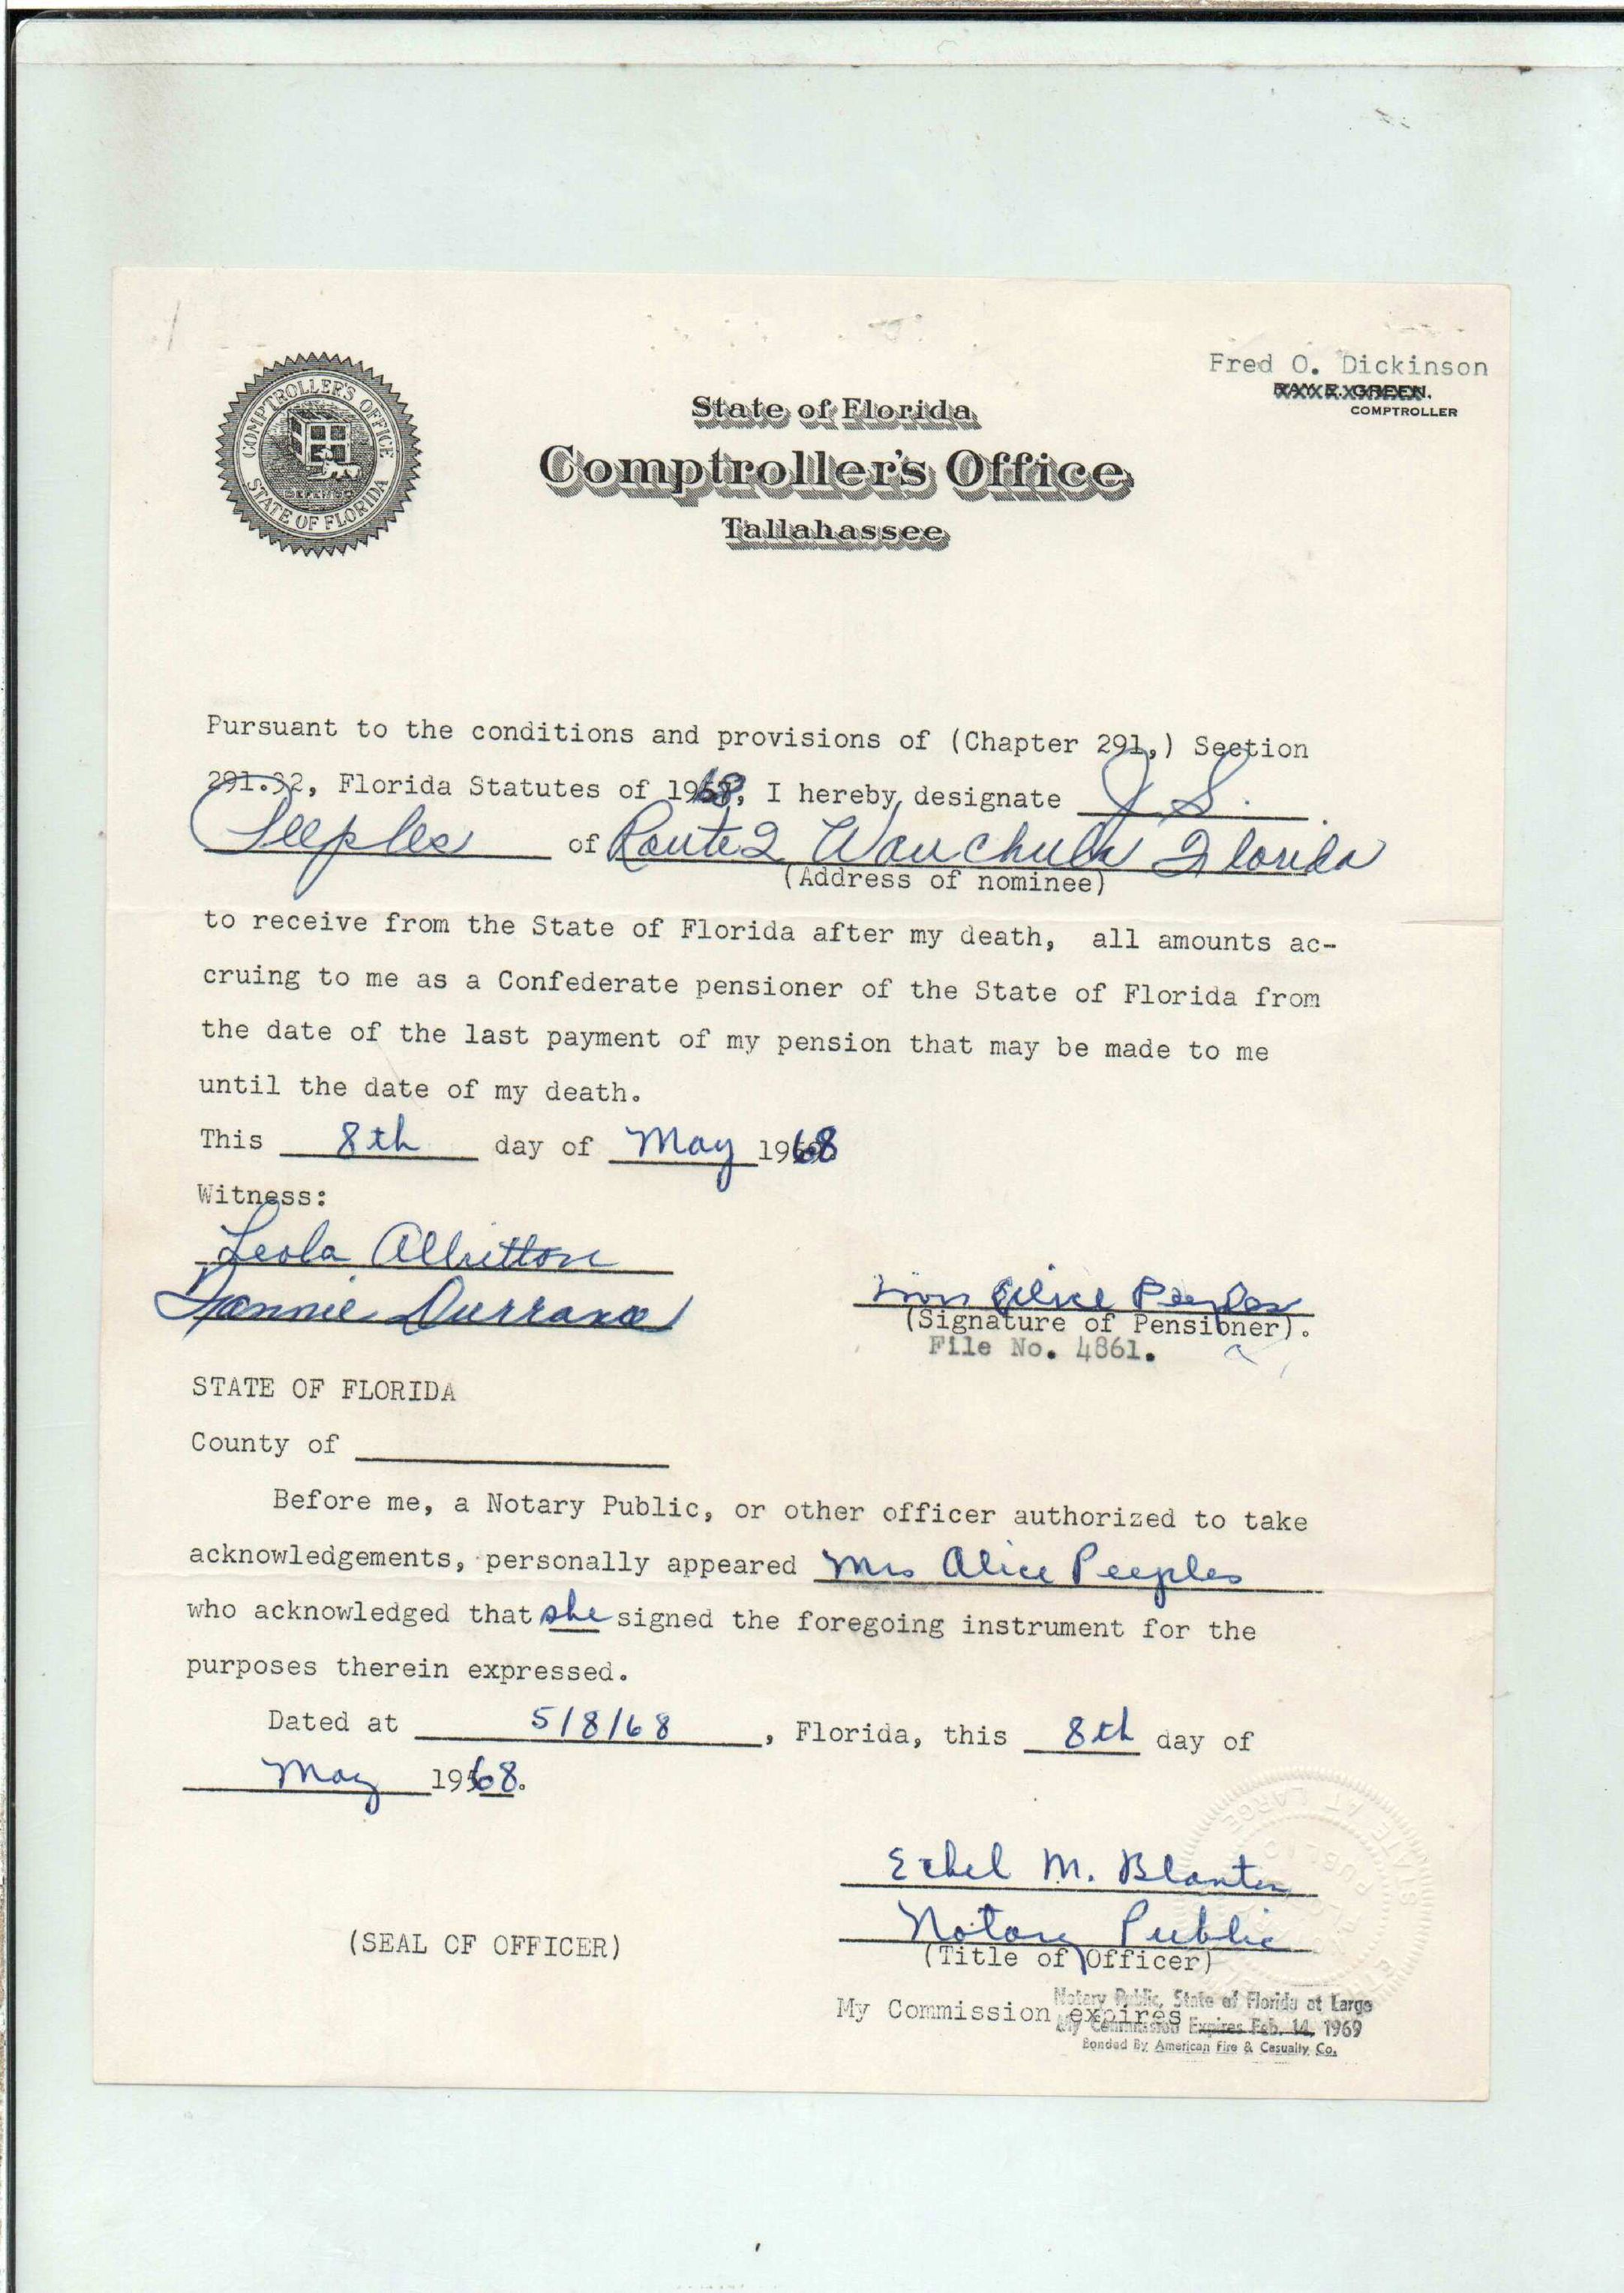 Fred O. Dickinson
RAY E. GREEN.
COMPTROLLER
COMPTROLLER'S OFFICE
STATE OF FLORIDA
State of Florida
Comptroller's Office
Tallahassee
Pursuant to the conditions and provisions of (Chapter 291,) Section
291.32, Florida Statutes of 1968, I hereby designate J. S.
Peeples of Route 2 Wauchula Florida
(Address of nominee)
to receive from the State of Florida after my death, all amounts ac-
cruing to me as a Confederate pensioner of the State of Florida from
the date of the last payment of my pension that may be made to me
until the date of my death.
This 8th day of May 1968
Witness:
Leola Albritton
Fannie Durrance
Mrs Alice Peeples
(Signature of Pensioner).
File No. 4861.
STATE OF FLORIDA
County of
Before me, a Notary Public, or other officer authorized to take
acknowledgements, personally appeared Mrs Alice Peeples
who acknowledged that she signed the foregoing instrument for the
purposes therein expressed.
Dated at 5/8/68, Florida, this 8th day of
May 1968.
Ethel M. Blanton
Notary Public
(SEAL OF OFFICER)
(Title of Officer)
My Commission expires
Notary Public, State of Florida at Large
My Commission Expires Feb. 14, 1969
Bonded By American Fire & Casualty Co.